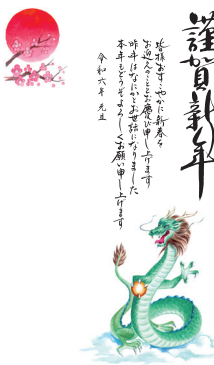 謹賀新年
皆様おすこやかに新春を
お迎えのこととお慶び申し上げます
昨年はなにかとお世話になりました
本年もどうぞよろしくお願い申し上げます
令和六年 元旦